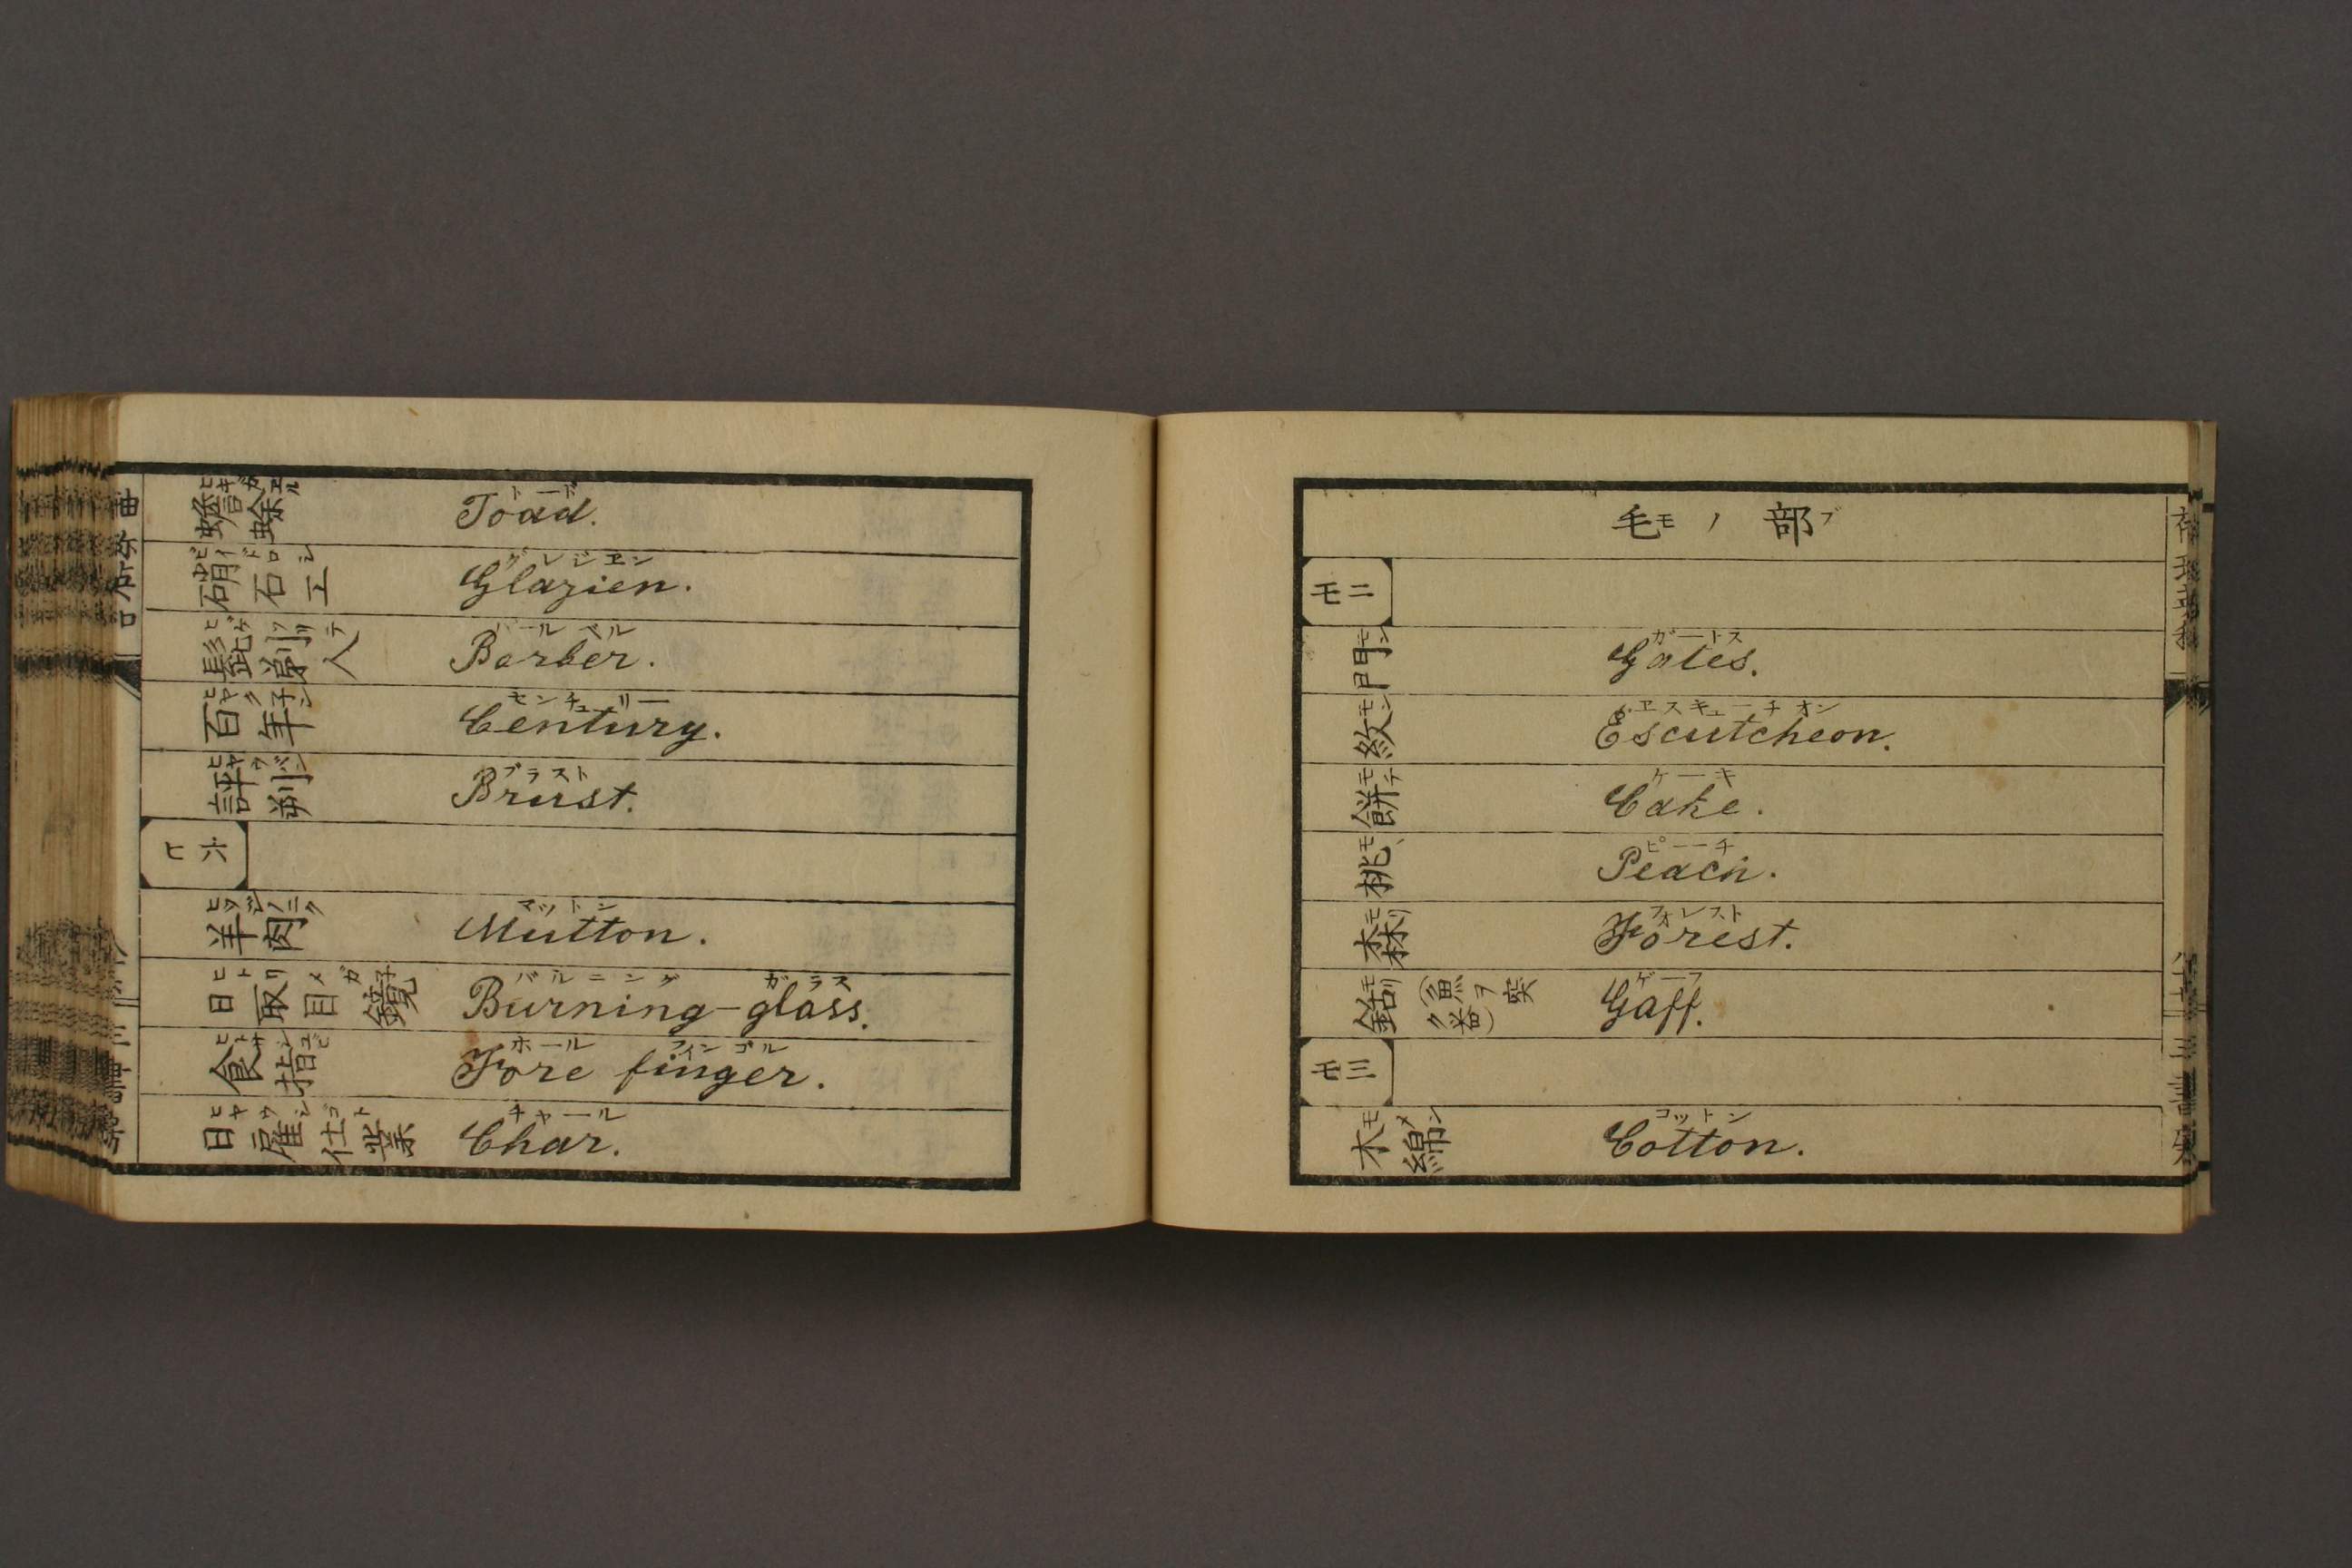 蟾蜍 ヒキガヱル トード Toad.
硝石工 ビイドロシ グレジエン Glazien.
髭剃人 ヒゲソリテ バールベル Barber.
百年 ヒヤクネン センチュリー Century.
評判 ヒヤウバン ブラスト Brust.
ヒ六
羊肉 ヒツジノニク マットン Mutton.
日取目鏡 ヒトリメガ子 バルニング ガラス Burning-glass.
食指 ヒトサシユビ ホール フィンゴル Fore finger.
日雇仕業 ヒヤウシゴト チャール Char.
毛モノ部ブ
モ二
門 モン ガートス Gates.
紋 モン ヱスキューチオン Escutcheon.
餅 モチ ケーキ Cake.
桃 モヽ ピーチ Peach.
森 モリ フォレスト Forest.
銛 モリ (魚ヲ突ク器) ゲーフ Gaff.
モ三
木綿 モメン コットン Cotton.